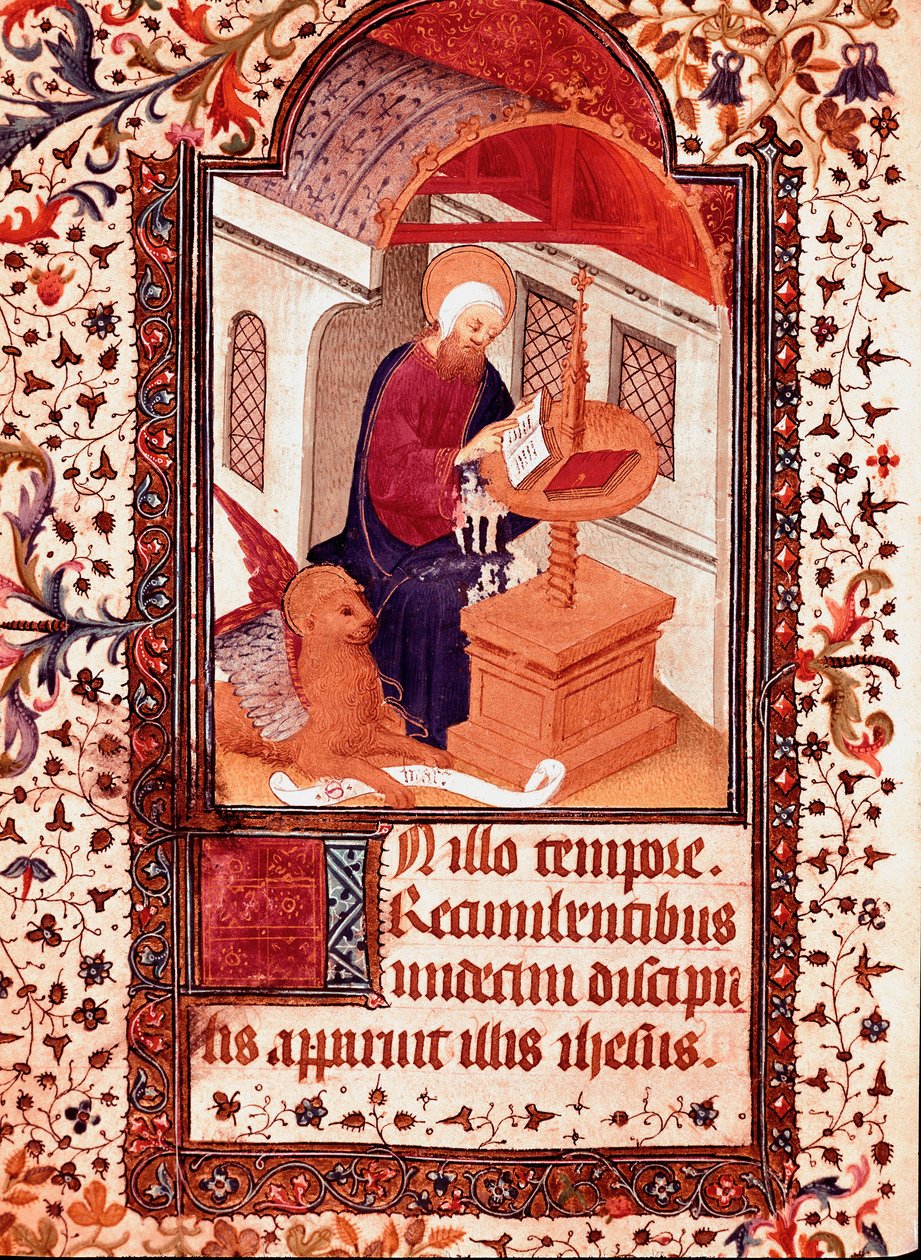 S marc
IN illo tempore.
Recumbentibus
undecim discipu
lis apparuit illis ihesus.